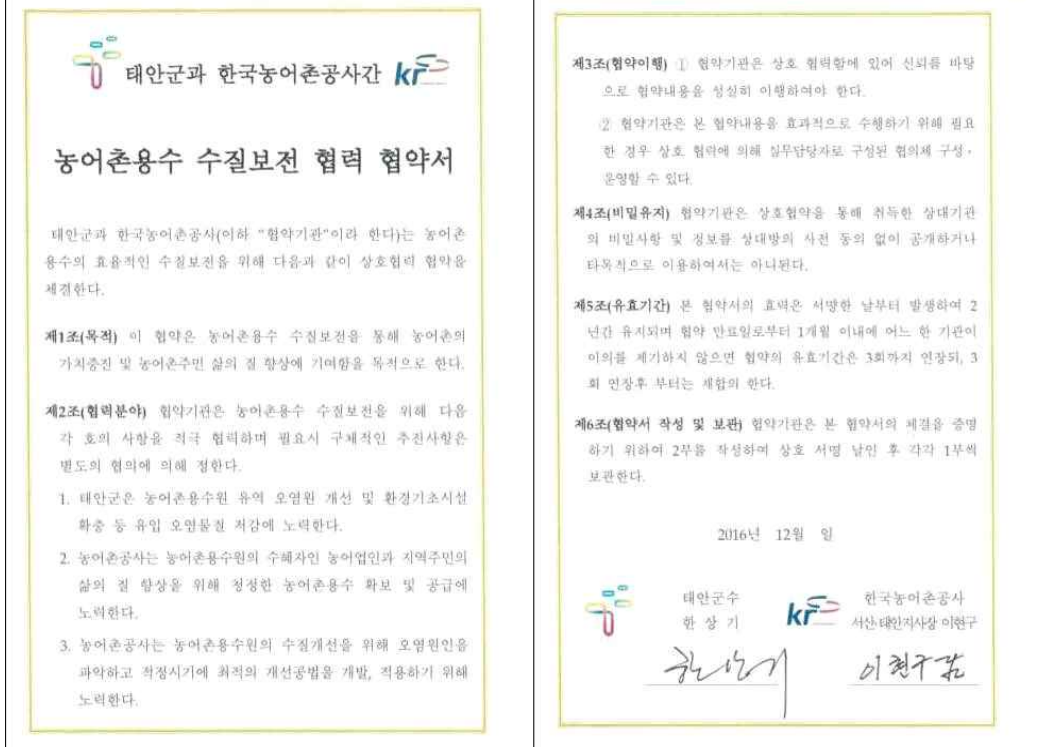 태안군과 한국농어촌공사간 kr
농어촌용수 수질보전 협력 협약서
태안군과 한국농어촌공사(이하 "협약기관"이라 한다)는 농어촌
용수의 효율적인 수질보전을 위해 다음과 같이 상호협력 협약을
체결한다.
제1조(목적) 이 협약은 농어촌용수 수질보전을 통해 농어촌의
가치증진 및 농어촌주민 삶의 질 향상에 기여함을 목적으로 한다.
제2조(협력분야) 협약기관은 농어촌용수 수질보전을 위해 다음
각 호의 사항을 적극 협력하며 필요시 구체적인 추진사항은
별도의 협의에 의해 정한다.
1. 태안군은 농어촌용수원 유역 오염원 개선 및 환경기초시설
확충 등 유입 오염물질 저감에 노력한다.
2. 농어촌공사는 농어촌용수원의 수혜자인 농어업인과 지역주민의
삶의 질 향상을 위해 청정한 농어촌용수 확보 및 공급에
노력한다.
3. 농어촌공사는 농어촌용수원의 수질개선을 위해 오염원인을
파악하고 적정시기에 최적의 개선공법을 개발, 적용하기 위해
노력한다.
제3조(협약이행) ① 협약기관은 상호 협력함에 있어 신뢰를 바탕
으로 협약내용을 성실히 이행하여야 한다.
② 협약기관은 본 협약내용을 효과적으로 수행하기 위해 필요
한 경우 상호 협력에 의해 실무담당자로 구성된 협의체 구성·
운영할 수 있다.
제4조(비밀유지) 협약기관은 상호협약을 통해 취득한 상대기관
의 비밀사항 및 정보를 상대방의 사전 동의 없이 공개하거나
타목적으로 이용하여서는 아니된다.
제5조(유효기간) 본 협약서의 효력은 서명한 날부터 발생하여 2
년간 유지되며 협약 만료일로부터 1개월 이내에 어느 한 기관이
이의를 제기하지 않으면 협약의 유효기간은 3회까지 연장되, 3
회 연장후 부터는 재합의 한다.
제6조(협약서 작성 및 보관) 협약기관은 본 협약서의 체결을 증명
하기 위하여 2부를 작성하여 상호 서명 날인 후 각각 1부씩
보관한다.
2016년 12월 일
태안군수
한 상 기
kr 한국농어촌공사
서산·태안지사장 이현구
한상기
이현구